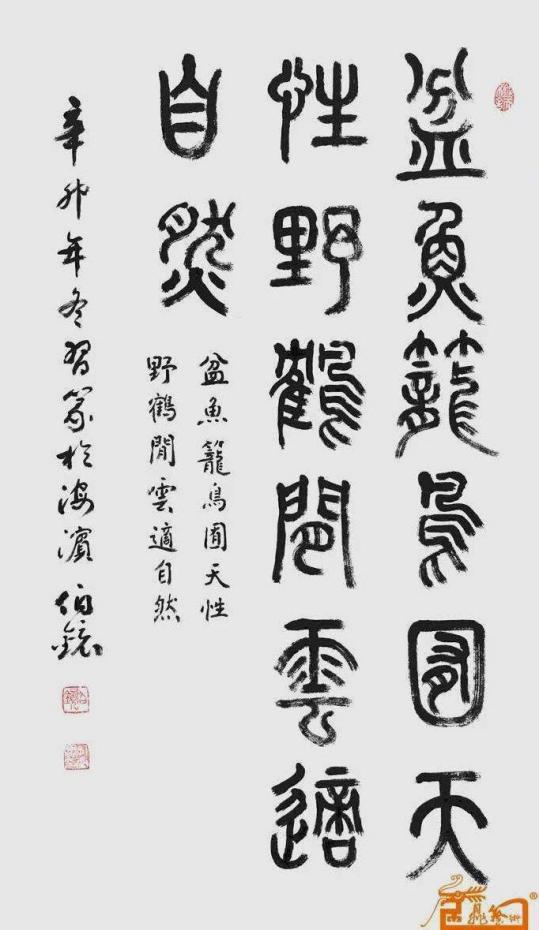 盆魚籠鳥囿天
性野鶴閒雲適
自然
盆魚籠鳥囿天性
野鶴閒雲適自然
辛卯年冬習篆於海濱 伯鑲